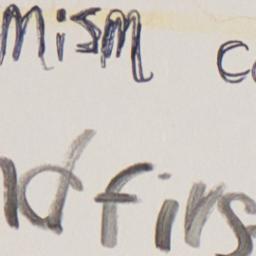 mism c
nd firs